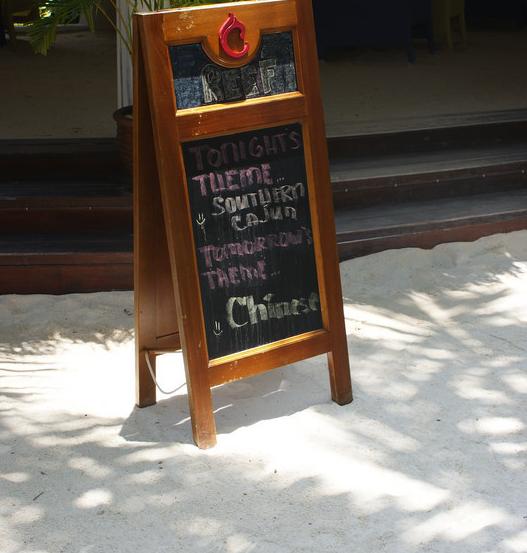 REEF
TONIGHT'S
THEME...
SOUTHERN
CAJUN
TOMORROW'S
THEME...
Chinese